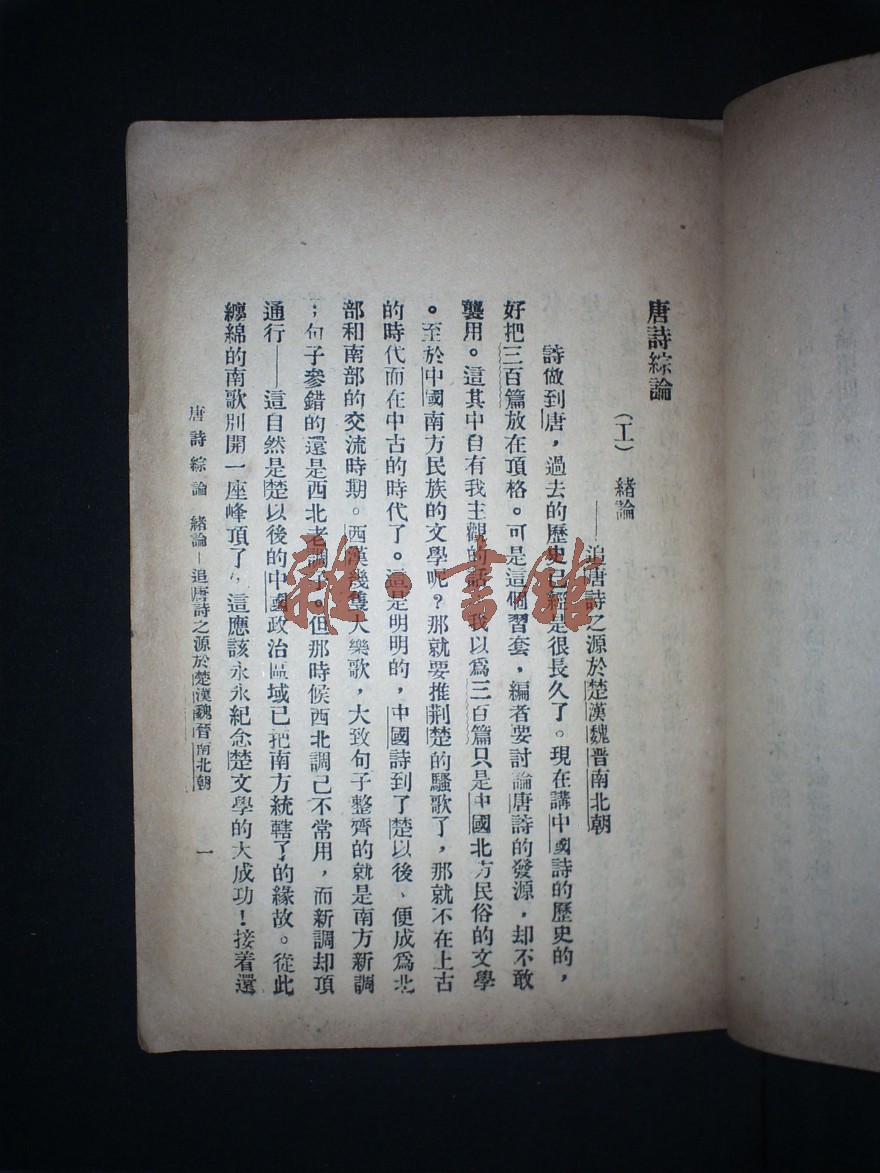 唐詩綜論
（工） 緒論
——追唐詩之源於楚漢魏晋南北朝
詩做到唐，過去的歷史已經是很長久了。現在講中國詩的歷史的，
好把三百篇放在頂格。可是這個習套，編者要討論唐詩的發源，却不敢
襲用。這其中自有我主觀的話，我以爲三百篇只是中國北方民俗的文學
。至於中國南方民族的文學呢？那就要推荆楚的騷歌了，那就不在上古
的時代而在中古的時代了。這是明明的，中國詩到了楚以後、便成爲北
部和南部的交流時期。西漢幾隻大樂歌，大致句子整齊的就是南方新調
；句子參錯的還是西北老調子。但那時候西北調已不常用，而新調却頂
通行——這自然是楚以後的中國政治區域已把南方統轄了的緣故。從此
纏綿的南歌別開一座峰頂了，這應該永永紀念楚文學的大成功！接着還
唐詩綜論 緒論—追唐詩之源於楚漢魏晉南北朝 一
雜·書館